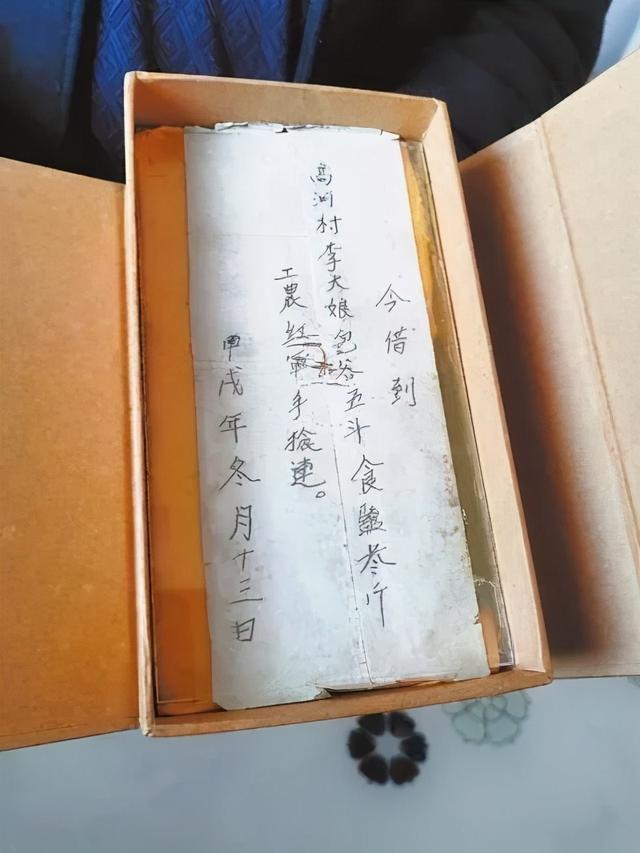 今借到
高洞村李大娘包谷五斗食鹽叁斤
工農红軍手捡連。
甲戌年冬月十三日